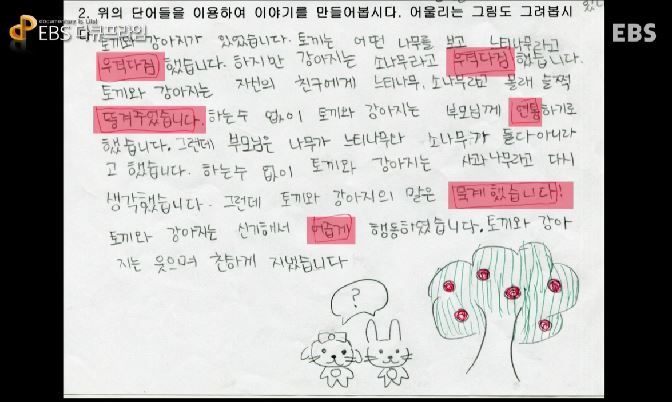 EBS 다큐프라임
EBS
2. 위의 단어들을 이용하여 이야기를 만들어봅시다. 어울리는 그림도 그려봅시
토끼와 강아지가 있었습니다. 토끼는 어떤 나무를 보고 느티나무라고
우격다짐 했습니다. 하지만 강아지는 소나무라고 우격다짐 했습니다.
토끼와 강아지는 자신의 친구에게 느티나무, 소나무라고 몰래 슬쩍
퉁겨주었습니다. 하는수 없이 토끼와 강아지는 부모님께 연통하기로
했습니다. 그런데 부모님은 나무가 느티나무나 소나무가 둘다 아니라
고 했습니다. 하는수 없이 토끼와 강아지는 사과나무라고 다시
생각했습니다. 그런데 토끼와 강아지의 말은 묵계했습니다!
토끼와 강아지는 신기해서 어줍게 행동하였습니다. 토끼와 강아
지는 웃으며 친하게 지냈습니다
?